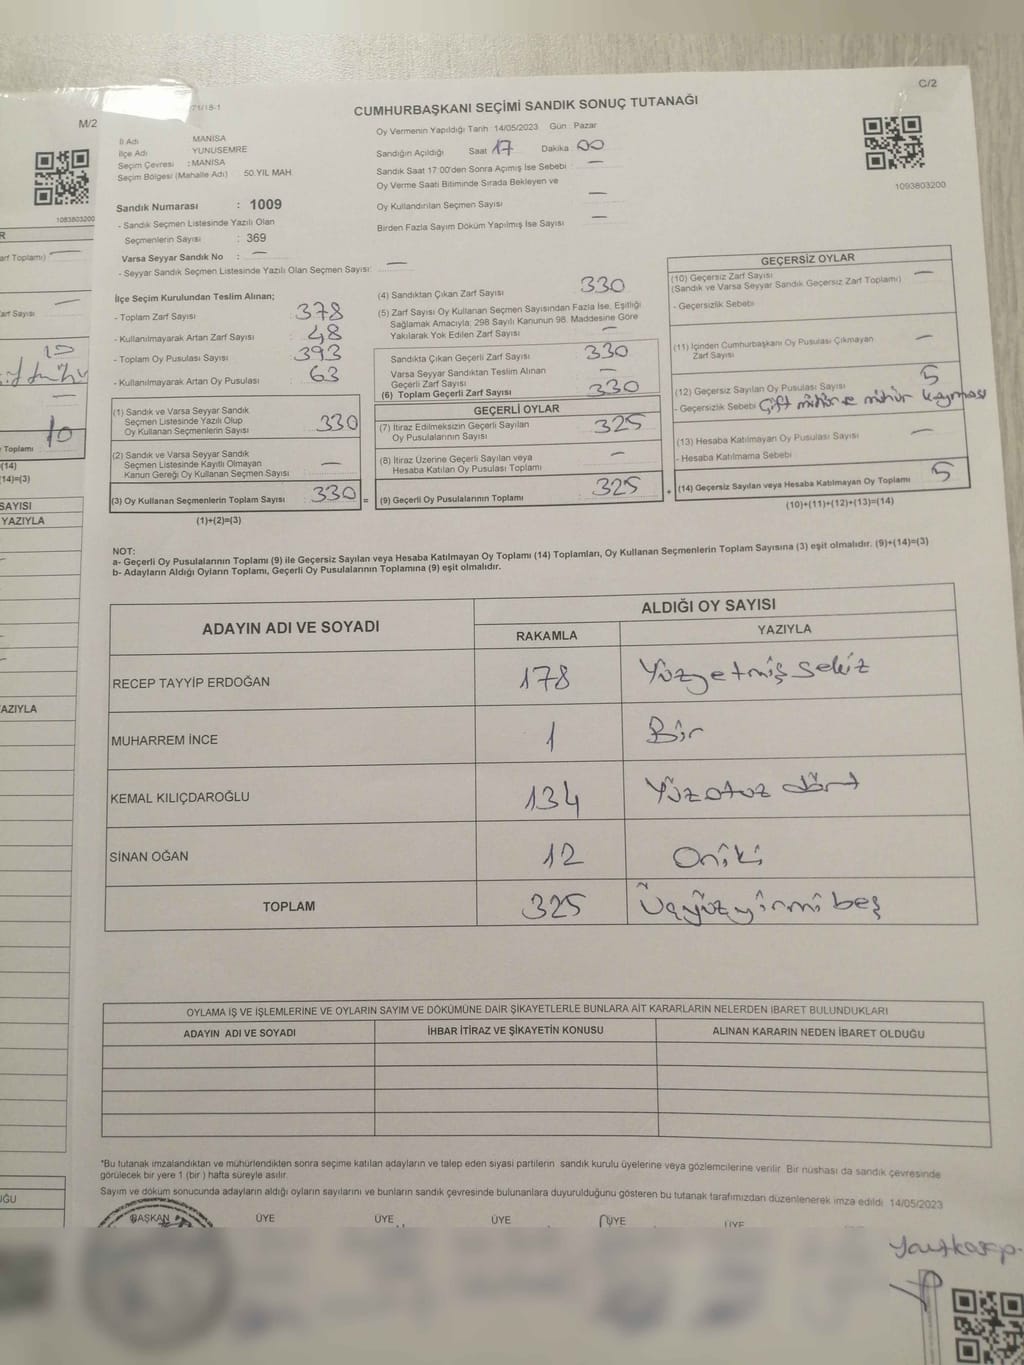 C/2
71/15-1
CUMHURBAŞKANI SEÇİMİ SANDIK SONUÇ TUTANAĞI
M/2
1083803200
1093803200
İl Adı MANİSA
İlçe Adı YUNUSEMRE
Seçim Çevresi : MANİSA
Seçim Bölgesi (Mahalle Adı) 50.YIL MAH.
Sandık Numarası : 1009
- Sandık Seçmen Listesinde Yazılı Olan
Seçmenlerin Sayısı : 369
Varsa Seyyar Sandık No : —
- Seyyar Sandık Seçmen Listesinde Yazılı Olan Seçmen Sayısı: —
Oy Vermenin Yapıldığı Tarih 14/05/2023 Gün : Pazar
Sandığın Açıldığı Saat 17 Dakika 00
Sandık Saat 17:00'den Sonra Açımış İse Sebebi —
Oy Verme Saati Bitiminde Sırada Bekleyen ve
Oy Kullandırılan Seçmen Sayısı —
Birden Fazla Sayım Döküm Yapılmış İse Sayısı —
İlçe Seçim Kurulundan Teslim Alınan;
- Toplam Zarf Sayısı : 378
- Kullanılmayarak Artan Zarf Sayısı : 48
- Toplam Oy Pusulası Sayısı : 393
- Kullanılmayarak Artan Oy Pusulası : 63
(1) Sandık ve Varsa Seyyar Sandık
Seçmen Listesinde Yazılı Olup
Oy Kullanan Seçmenlerin Sayısı 330
(2) Sandık ve Varsa Seyyar Sandık
Seçmen Listesinde Kayıtlı Olmayan
Kanun Gereği Oy Kullanan Seçmen Sayısı —
(3) Oy Kullanan Seçmenlerin Toplam Sayısı 330 =
(1)+(2)=(3)
(4) Sandıktan Çıkan Zarf Sayısı 330
(5) Zarf Sayısı Oy Kullanan Seçmen Sayısından Fazla İse, Eşitliği
Sağlamak Amacıyla; 298 Sayılı Kanunun 98. Maddesine Göre
Yakılarak Yok Edilen Zarf Sayısı —
Sandıkta Çıkan Geçerli Zarf Sayısı 330
Varsa Seyyar Sandıktan Teslim Alınan
Geçerli Zarf Sayısı —
(6) Toplam Geçerli Zarf Sayısı 330
GEÇERLİ OYLAR
(7) İtiraz Edilmeksizin Geçerli Sayılan
Oy Pusulalarının Sayısı 325
(8) İtiraz Üzerine Geçerli Sayılan veya
Hesaba Katılan Oy Pusulası Toplamı —
(9) Geçerli Oy Pusulalarının Toplamı 325 +
GEÇERSİZ OYLAR
(10) Geçersiz Zarf Sayısı —
(Sandık ve Varsa Seyyar Sandık Geçersiz Zarf Toplamı)
- Geçersizlik Sebebi
(11) İçinden Cumhurbaşkanı Oy Pusulası Çıkmayan
Zarf Sayısı —
(12) Geçersiz Sayılan Oy Pusulası Sayısı 5
- Geçersizlik Sebebi Çift mühür ve mühür kayması
(13) Hesaba Katılmayan Oy Pusulası Sayısı —
- Hesaba Katılmama Sebebi
(14) Geçersiz Sayılan veya Hesaba Katılmayan Oy Toplamı 5
(10)+(11)+(12)+(13)=(14)
NOT:
a- Geçerli Oy Pusulalarının Toplamı (9) ile Geçersiz Sayılan veya Hesaba Katılmayan Oy Toplamı (14) Toplamları, Oy Kullanan Seçmenlerin Toplam Sayısına (3) eşit olmalıdır. (9)+(14)=(3)
b- Adayların Aldığı Oyların Toplamı, Geçerli Oy Pusulalarının Toplamına (9) eşit olmalıdır.
ADAYIN ADI VE SOYADI
ALDIĞI OY SAYISI
RAKAMLA YAZIYLA
RECEP TAYYİP ERDOĞAN 178 Yüzyetmiş sekiz
MUHARREM İNCE 1 Bir
KEMAL KILIÇDAROĞLU 134 Yüzotuz dört
SİNAN OĞAN 12 Oniki
TOPLAM 325 Üçyüzyirmi beş
OYLAMA İŞ VE İŞLEMLERİNE VE OYLARIN SAYIM VE DÖKÜMÜNE DAİR ŞİKAYETLERLE BUNLARA AİT KARARLARIN NELERDEN İBARET BULUNDUKLARI
ADAYIN ADI VE SOYADI İHBAR İTİRAZ VE ŞİKAYETİN KONUSU ALINAN KARARIN NEDEN İBARET OLDUĞU
*Bu tutanak imzalandıktan ve mühürlendikten sonra seçime katılan adayların ve talep eden siyasi partilerin sandık kurulu üyelerine veya gözlemcilerine verilir. Bir nüshası da sandık çevresinde
görülecek bir yere 1 (bir) hafta süreyle asılır.
Sayım ve döküm sonucunda adayların aldığı oyların sayılarını ve bunların sandık çevresinde bulunanlara duyurulduğunu gösteren bu tutanak tarafımızdan düzenlenerek imza edildi 14/05/2023
BAŞKAN ÜYE ÜYE ÜYE ÜYE ÜYE
arf Toplamı) —
Zarf Sayısı —
10
—
10
Toplamı
(14)
14)=(3)
SAYISI
YAZIYLA
YAZIYLA